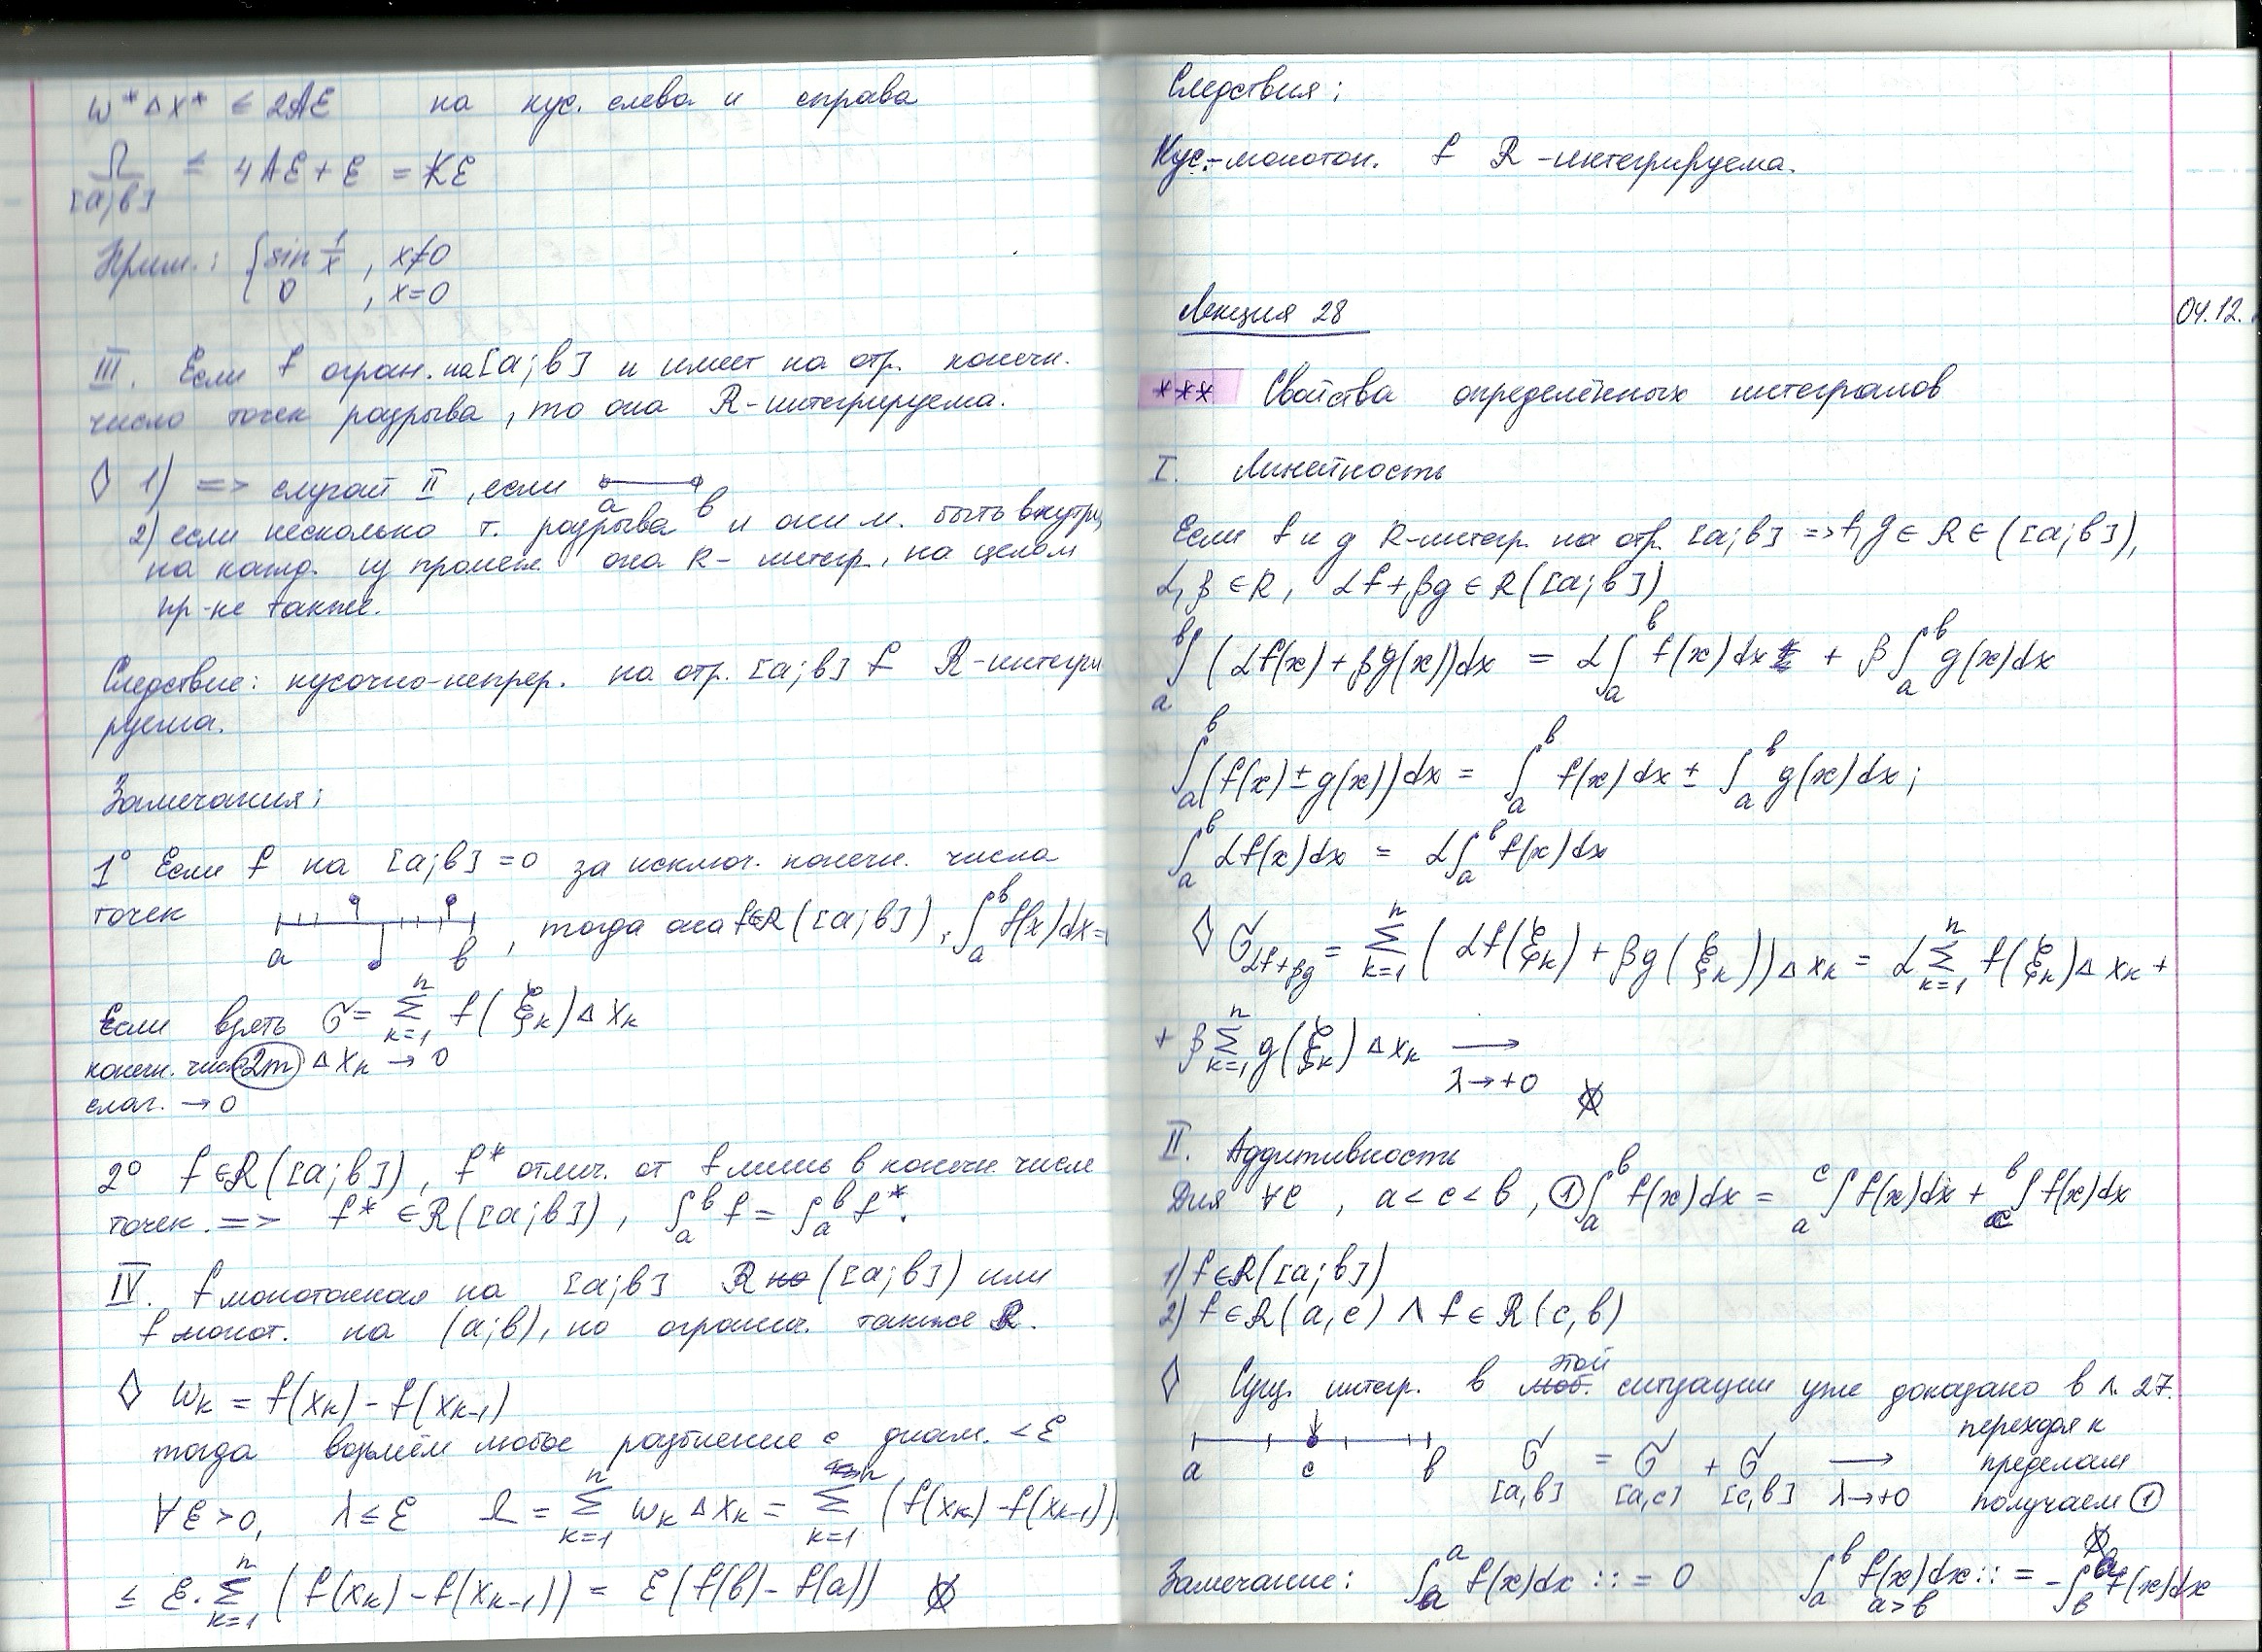 ω* Δx* ≤ 2Aε на кус. слева и справа
Ω [a;b] ≤ 4Aε + ε = Kε
Прим.: { sin 1/x , x≠0
0 , x=0
III. Если f огран. на [a;b] и имеет на отр. конечн.
число точек разрыва, то она R-интегрируема.
◊ 1) => случай II, если a b
2) если несколько т. разрыва и они м. быть внутри,
на кажд. из промеж. она R- интегр., на целом
пр-ке также.
Следствие: кусочно-непрер. на отр. [a;b] f R-интегри
руема.
Замечания:
1° Если f на [a;b] =0 за исключ. конечн. числа
точек a b , тогда она f∈R([a;b]), ∫_a^b f(x)dx=
Если взять σ = Σ_{k=1}^n f(ξ_k)Δx_k
конечн. числ 2m Δx_k → 0
слаг. → 0
2° f∈R([a;b]), f* отлич. от f лишь в конечн. числе
точек. => f* ∈R([a;b]), ∫_a^b f = ∫_a^b f*.
IV. f монотонная на [a;b] R ([a;b]) или
f монот. на (a;b), но огранич. также R.
◊ ω_k = f(x_k) - f(x_{k-1})
тогда возьмём любое разбиение с диам. < ε
∀ε>0, λ≤ε Ω = Σ_{k=1}^n ω_k Δx_k = Σ_{k=1}^n (f(x_k) - f(x_{k-1}))
≤ ε· Σ_{k=1}^n (f(x_k) - f(x_{k-1})) = ε(f(b) - f(a))
Следствия:
Кус.-монотон. f R-интегрируема.
Лекция 28 04.12.
*** Свойства определённых интегралов
I. Линейность
Если f и g R-интегр. на отр. [a;b] => f,g ∈ R∈([a;b]),
α,β ∈R, αf+βg ∈ R([a;b])
∫_a^b (αf(x) + βg(x))dx = α∫_a^b f(x)dx + β∫_a^b g(x)dx
∫_a^b (f(x) ± g(x))dx = ∫_a^b f(x)dx ± ∫_a^b g(x)dx;
∫_a^b αf(x)dx = α∫_a^b f(x)dx
◊ σ_{αf+βg} = Σ_{k=1}^n (αf(ξ_k) + βg(ξ_k))Δx_k = αΣ_{k=1}^n f(ξ_k)Δx_k +
+ βΣ_{k=1}^n g(ξ_k)Δx_k → λ→+0
II. Аддитивность
Для ∀c , a<c<b, ① ∫_a^b f(x)dx = ∫_a^c f(x)dx + ∫_c^b f(x)dx
1) f∈R([a;b])
2) f∈R(a,c) ∧ f∈R(c,b)
◊ Сущ. интегр. в этой ситуации уже доказано в л. 27.
a c b σ[a,b] = σ[a,c] + σ[c,b] → λ→+0 переходя к
пределам
получаем ①
Замечание: ∫_a^a f(x)dx ::= 0 ∫_a^b f(x)dx ::= -∫_b^a f(x)dx
a>b